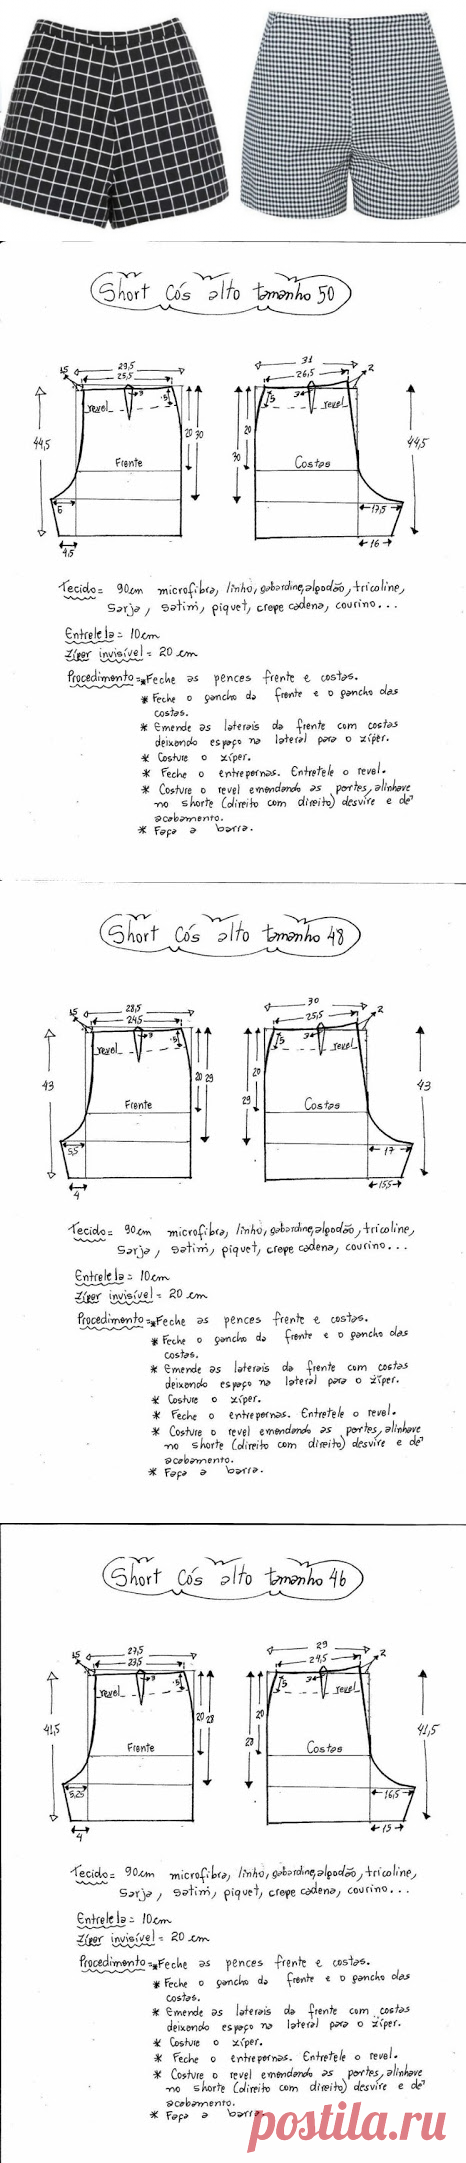 Short Cós alto tamanho 50
1,5
29,5
25,5
3
5
revel
44,5
20 30
Frente
6
4,5
31
26,5
2
5
3
revel
20
30
44,5
Costas
17,5
16
Tecido = 90cm microfibra, linho, gabardine, algodão, tricoline,
Sarja, Satim, piquet, crepe cadena, courino...
Entretela = 10cm
Zíper invisível = 20 cm
Procedimento = * Feche as pences frente e costas.
* Feche o gancho da frente e o gancho das
costas.
* Emende as laterais da frente com costas
deixando espaço na lateral para o zíper.
* Costure o zíper.
* Feche o entrepernas. Entretele o revel.
* Costure o revel emendando as partes, alinhave
no shorte (direito com direito) desvire e dê
acabamento.
* Faça a barra.
Short Cós alto tamanho 48
1,5
28,5
24,5
3
5
revel
43
20 29
Frente
5,5
4
30
25,5
2
5
3
revel
20
29
43
Costas
17
15,5
Tecido = 90cm microfibra, linho, gabardine, algodão, tricoline,
Sarja, Satim, piquet, crepe cadena, courino...
Entretela = 10cm
Zíper invisível = 20 cm
Procedimento = * Feche as pences frente e costas.
* Feche o gancho da frente e o gancho das
costas.
* Emende as laterais da frente com costas
deixando espaço na lateral para o zíper.
* Costure o zíper.
* Feche o entrepernas. Entretele o revel.
* Costure o revel emendando as partes, alinhave
no shorte (direito com direito) desvire e dê
acabamento.
* Faça a barra.
Short Cós alto tamanho 46
1,5
27,5
23,5
3
5
revel
41,5
20 28
Frente
5,25
4
29
24,5
2
5
3
revel
20
28
41,5
Costas
16,5
15
Tecido = 90cm microfibra, linho, gabardine, algodão, tricoline,
Sarja, Satim, piquet, crepe cadena, courino...
Entretela = 10cm
Zíper invisível = 20 cm
Procedimento = * Feche as pences frente e costas.
* Feche o gancho da frente e o gancho das
costas.
* Emende as laterais da frente com costas
deixando espaço na lateral para o zíper.
* Costure o zíper.
* Feche o entrepernas. Entretele o revel.
* Costure o revel emendando as partes, alinhave
no shorte (direito com direito) desvire e dê
acabamento.
* Faça a barra.
postila.ru